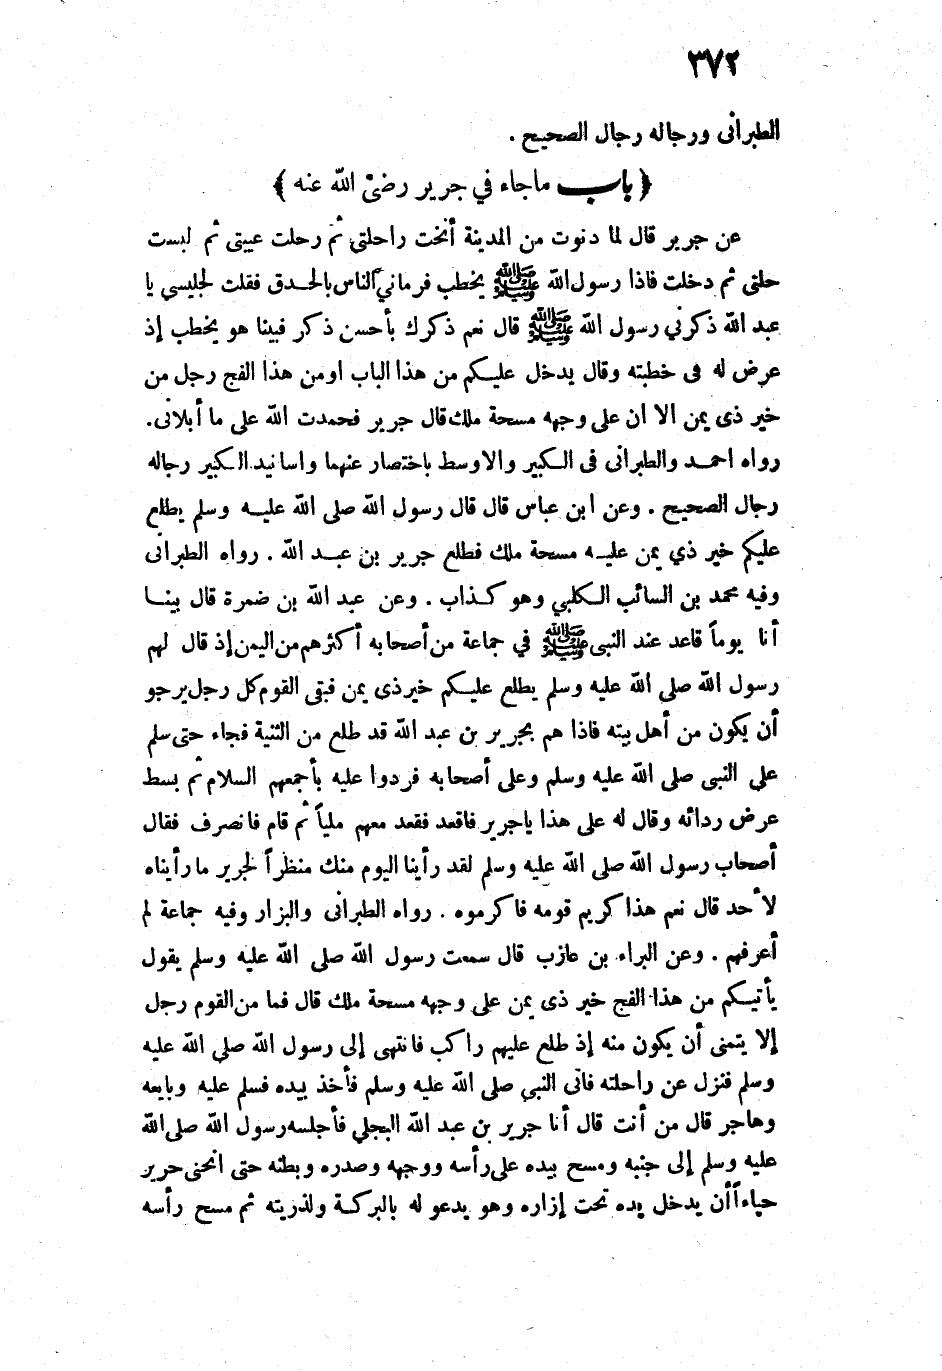 ٣٧٢
الطبرانى ورجاله رجال الصحيح .
﴿ باب ما جاء في جرير رضى الله عنه ﴾
عن جرير قال لما دنوت من المدينة أنخت راحلتى ثم رحلت عيبتى ثم لبست
حلتى ثم دخلت فاذا رسول الله ﷺ يخطب فرماني الناس بالحدق فقلت لجليسي يا
عبد الله ذكرني رسول الله ﷺ قال نعم ذكرك بأحسن ذكر فبينا هو يخطب إذ
عرض له فى خطبته وقال يدخل عليكم من هذا الباب اومن هذا الفج رجل من
خير ذى يمن الا ان على وجهه مسحة ملك قال جرير فحمدت الله على ما أبلانى.
رواه احمد والطبرانى فى الكبير والاوسط باختصار عنهما واسانيد الكبير رجاله
رجال الصحيح . وعن ابن عباس قال قال رسول الله صلى الله عليه وسلم يطلع
عليكم خير ذي يمن عليه مسحة ملك فطلع جرير بن عبد الله . رواه الطبرانى
وفيه محمد بن السائب الكلبي وهو كذاب . وعن عبد الله بن ضمرة قال بينا
أنا يوماً قاعد عند النبى ﷺ في جماعة من أصحابه أكثرهم من اليمن إذ قال لهم
رسول الله صلى الله عليه وسلم يطلع عليكم خير ذى يمن فبقى القوم كل رجل يرجو
أن يكون من أهل بيته فاذا هم بجرير بن عبد الله قد طلع من الثنية فجاء حتى سلم
على النبى صلى الله عليه وسلم وعلى أصحابه فردوا عليه بأجمعهم السلام ثم بسط
عرض ردائه وقال له على هذا ياجرير فاقعد فقعد معهم ملياً ثم قام فانصرف فقال
أصحاب رسول الله صلى الله عليه وسلم لقد رأينا اليوم منك منظراً لجرير ما رأيناه
لأحد قال نعم هذا كريم قومه فاكرموه . رواه الطبرانى والبزار وفيه جماعة لم
أعرفهم . وعن البراء بن عازب قال سمعت رسول الله صلى الله عليه وسلم يقول
يأتيكم من هذا الفج خير ذى يمن على وجهه مسحة ملك قال فما من القوم رجل
إلا يتمنى أن يكون منه إذ طلع عليهم راكب فانتهى إلى رسول الله صلى الله عليه
وسلم فنزل عن راحلته فاتى النبي صلى الله عليه وسلم فأخذ بيده فسلم عليه وبايعه
وهاجر قال من أنت قال أنا جرير بن عبد الله البجلي فأجلسه رسول الله صلى الله
عليه وسلم إلى جنبه ومسح بيده على رأسه ووجهه وصدره وبطنه حتى انحنى جرير
حياءاً أن يدخل يده تحت إزاره وهو يدعو له بالبركة ولذريته ثم مسح رأسه